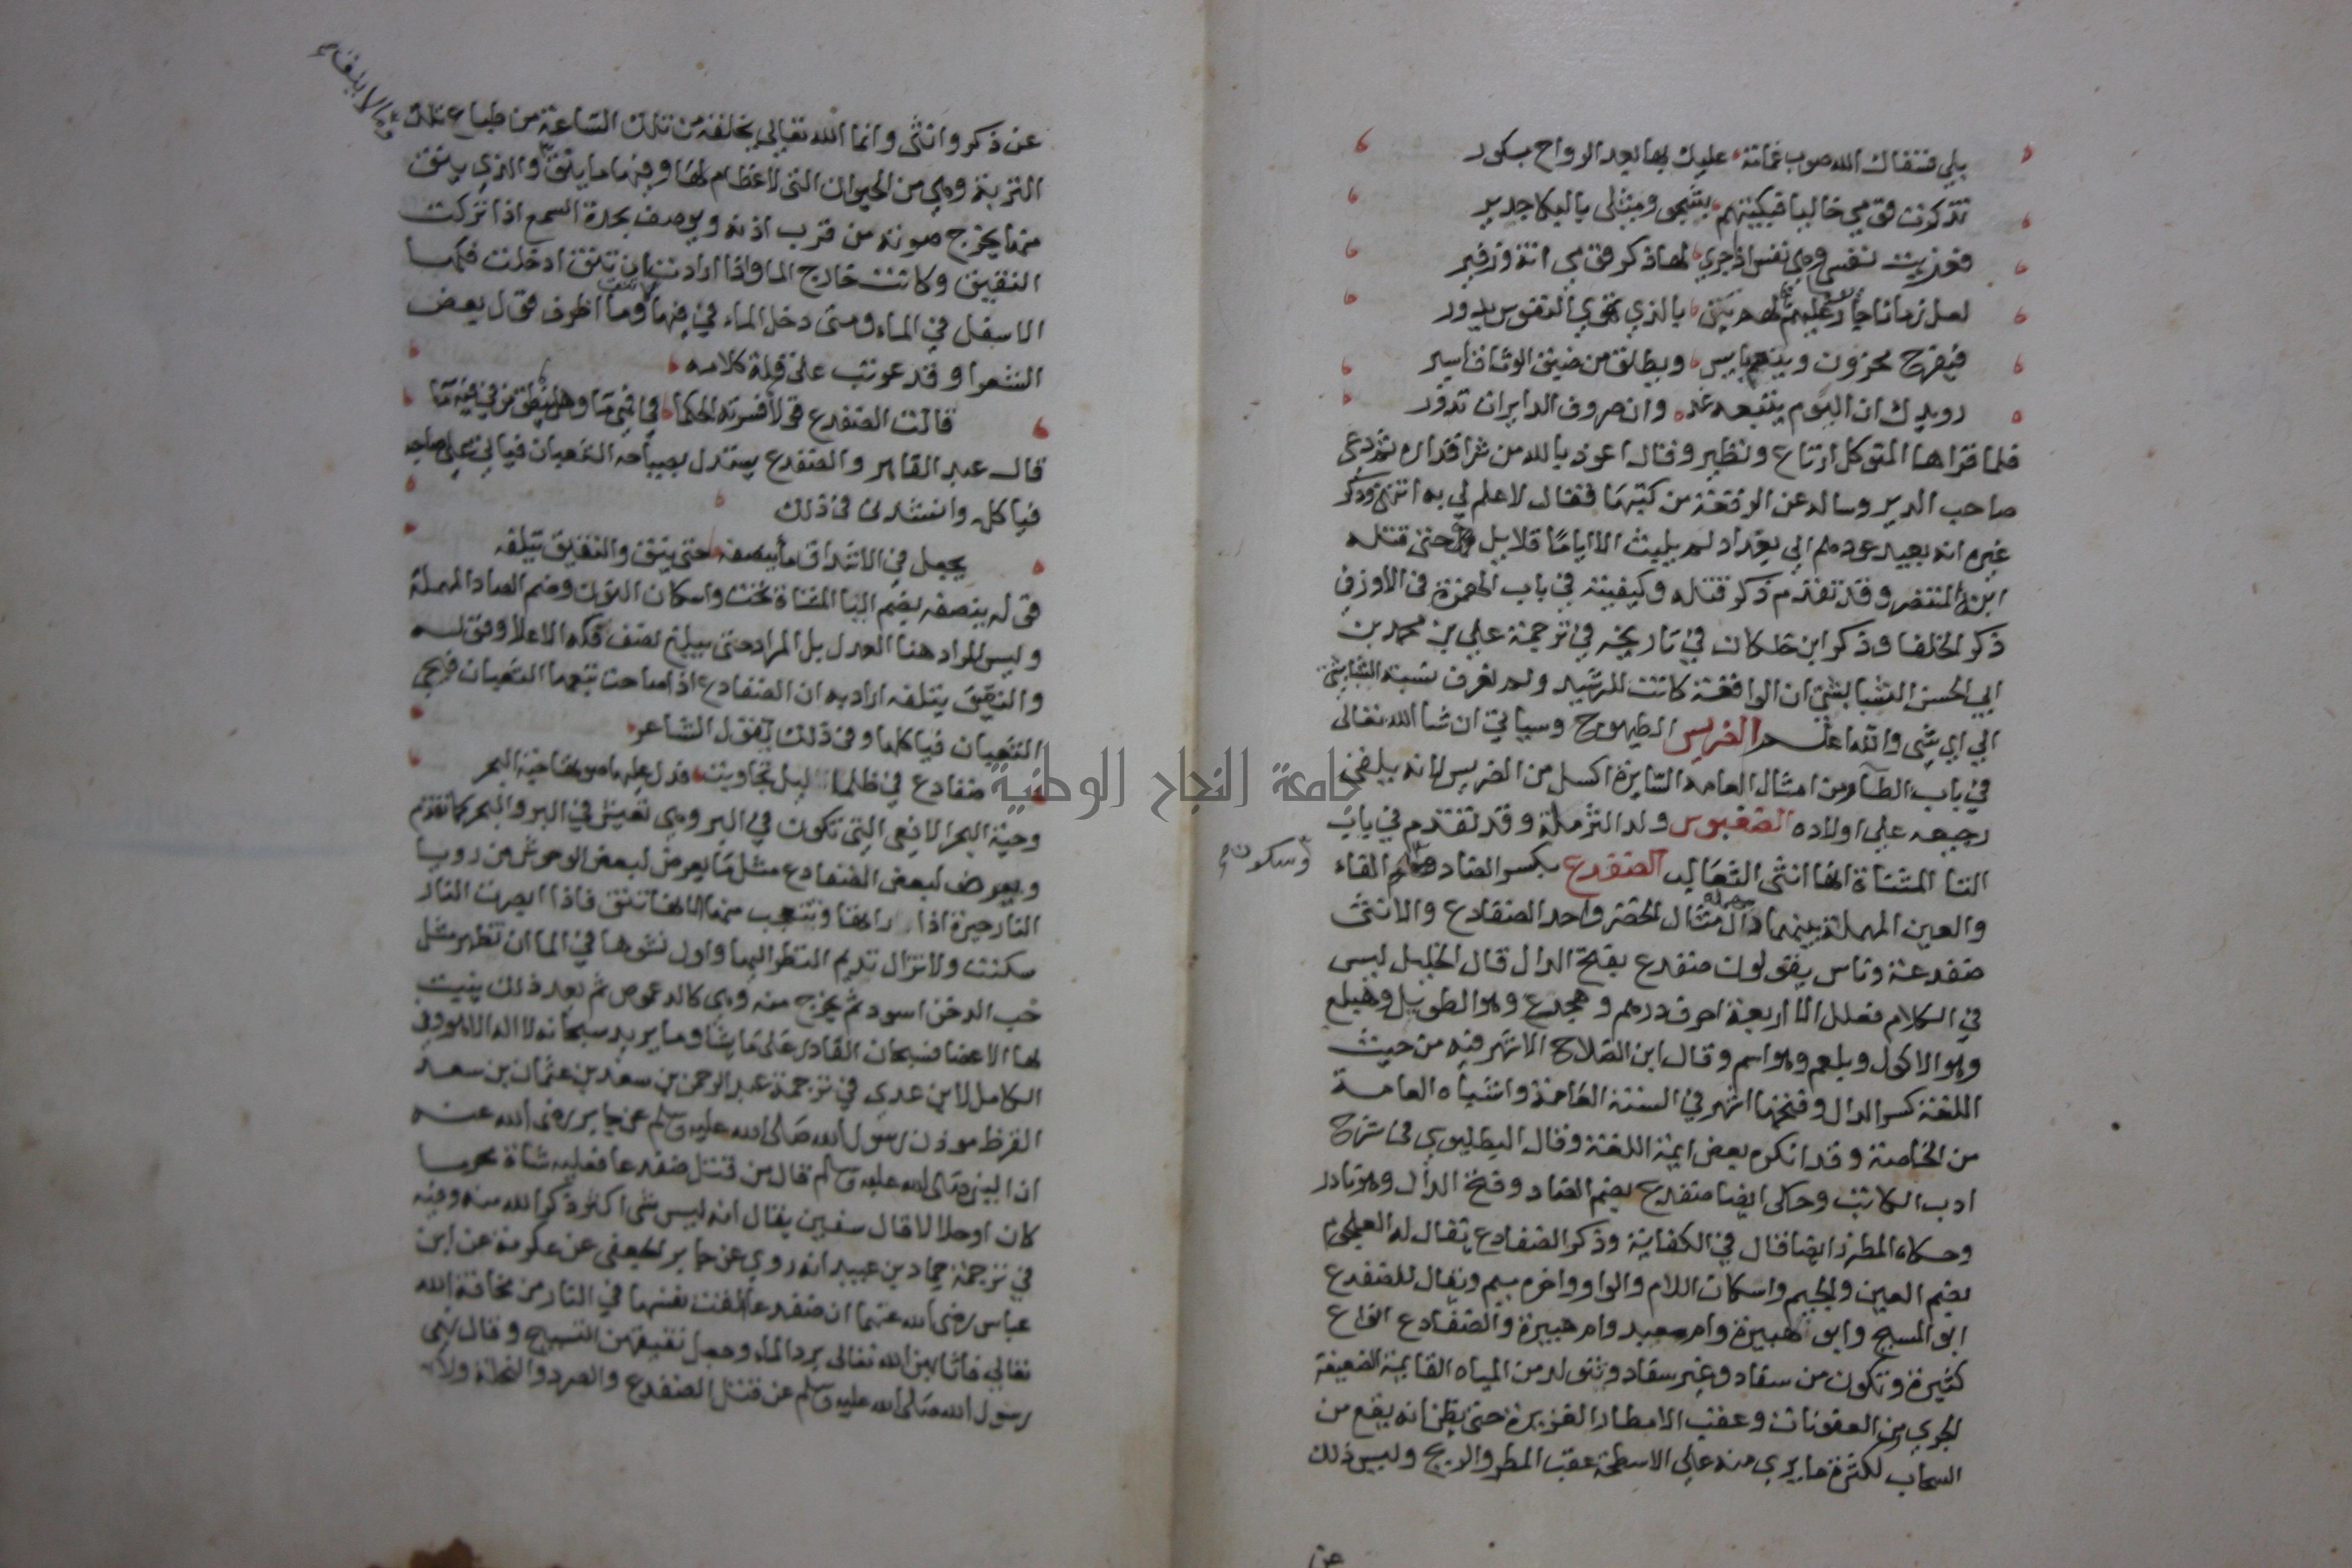 بلي فسقاك الله صوب غمامة عليك بها بعد الرواح بكور
تذكرت قومي خاليا فبكيتهم بشجو ومثلي بالبكا جدير
فعزيت نفسي وهي نفس اذا جري لها ذكر قومي انة وزفير
لعل زمانا جار عليهم لهم بالذي تهوي النفوس يدور
فيفرح محزون وينعم بايس ويطلق من ضيق الوثاق اسير
رويدك ان اليوم يتبعه غد وان صروف الدايرات تدور
فلما قراها المتوكل ارتاع وتطير وقال اعوذ بالله من شر اقداره ثم دعي
صاحب الدير وساله عن الرقعة من كتبها فقال لا علم لي به انتهي وذكر
غيره انه بعيد عوده الي بغداد لم يلبث الا اياما قلايل حتي قتله
ابنه المنتصر وقد تقدم ذكر قتله وكيفيته في باب الهمزة في الاوز في
ذكر الخلفا وذكر ابن خلكان في تاريخه في ترجمة علي بن محمد بن
ابي الحسن الشابشتي ان الواقعة كانت للرشيد ولم تعرف نسبة الشابشتي
الي اي شي والله اعلم الضريس الطيهوج وسياتي ان شا الله تعالي
في باب الطاء ومن امثال العامه السايرة اكسل من الضريس لانه يلقي
رجيعه علي اولاده الضغبوس ولد الثرملة وقد تقدم في باب
الثا المثناة انها انثي الثعالب الضفدع بكسر الضاد الفاء
وسكون
والعين المهملة بينهما دال مهملة مثال الخنصر واحد الضفادع والانثي
ضفدعة وناس يقولون ضفدع بفتح الدال قال الخليل ليس
في الكلام فعلل الا اربعة احرف درهم وهجرع وهو الطويل وهبلع
وهو الاكول وبلعم وهو اسم وقال ابن الصلاح الاشهر فيه من حيث
اللغة كسر الدال وفتحها اشهر في السنة العامة واشباه العامة
من الخاصة وقد انكره بعض ايمة اللغة وقال البطليوسي في شرح
ادب الكاتب وحكي ايضا ضفدع بضم الضاد وفتح الدال وهو نادر
وحكاه المطرز ايضا قال في الكفاية وذكر الضفادع يقال له العلجوم
بضم العين والجيم واسكان اللام والواو واخره ميم ويقال للضفدع
ابو المسبح وابو هبيرة وام معبد وام هبيرة والضفادع انواع
كثيرة وتكون من سفاد وغير سفاد وتتولد من المياه القايمة الضعيفة
الجري ومن العفونات وعقب الامطار الغزيرة حتي يظن انه يقع من
السحاب لكثرة ما يري منه علي الاسطحة عقب المطر والريح وليس ذلك
عن
عن ذكر وانثي وانما الله تعالي يخلقه من تلك الساعة من طباع تلك
التربة وهي من الحيوان التي لا عظام لها ومنها ما ينق والذي ينق
ومنها ما لا ينق
منها يخرج صوته من قرب اذنه ويوصف بحدة السمع اذا تركت
النقيق وكانت خارج الما واذا ارادت ان تنق ادخلت فكها
الاسفل في الماء ومتي دخل الماء في فيها وما اظرف قول بعض
الشعرا وقد عوتب علي قلة كلامه
قالت الضفدع قولا فسرته الحكما في فمي ما وهل ينطق من في فيه ما
قال عبد القاهر والضفدع يستدل بصياحه الثعبان فياتي علي صياحه
فياكله وانشد في ذلك
يجعل في الاشداق ما ينصفه حتي ينق والنقيق يتلفه
قوله ينصفه بضم اليا المثناة تحت واسكان النون وضم الصاد المهملة
وليس المراد هنا العدل بل المراد حتي يبلغ نصف فكه الاعلا وقوله
والنقيق يتلفه اراد به ان الضفادع اذا صاحت تبعها الثعبان فيجي
الثعبان فياكلها وفي ذلك يقول الشاعر
ضفادع في ظلما ليل تجاوبت فدل عليها صوتها حية البحر
وحية البحر الافعي التي تكون في البر وهي تعيش في البر والبحر كما تقدم
ويعرض لبعض الضفادع مثل ما يعرض لبعض الوحوش من رويا
النار حيرة اذا راتها وتتعجب منها لانها تنق فاذا ابصرت النار
سكتت ولا تزال تديم النظر اليها واول نشوها في الما ان تظهر مثل
حب الدخن اسود ثم يخرج منه وهي كالدعموص ثم بعد ذلك ينبت
لها الاعضا فسبحان القادر علي ما يشا وما يريد سبحانه لا اله الا هو وفي
الكامل لابن عدي في ترجمة عبد الرحمن بن سعد بن عثمان بن سعد
القرظ موذن رسول الله صلي الله عليه وسلم عن جابر رضي الله عنه
ان النبي صلي الله عليه وسلم قال من قتل ضفدعا فعليه شاة محرما
كان او حلالا قال سفين يقال انه ليس شي اكثر ذكرا لله منه وفيه
في ترجمة حماد بن عبيد انه روي عن جابر الجعفي عن عكرمة عن ابن
عباس رضي الله عنهما ان ضفدعا القت نفسها في النار من مخافة الله
تعالي فاثابهن الله تعالي برد الماء وجعل نقيقهن التسبيح وقال نهي
رسول الله صلي الله عليه وسلم عن قتل الضفدع والصرد والنحلة ولا
جامعة النجاح الوطنية